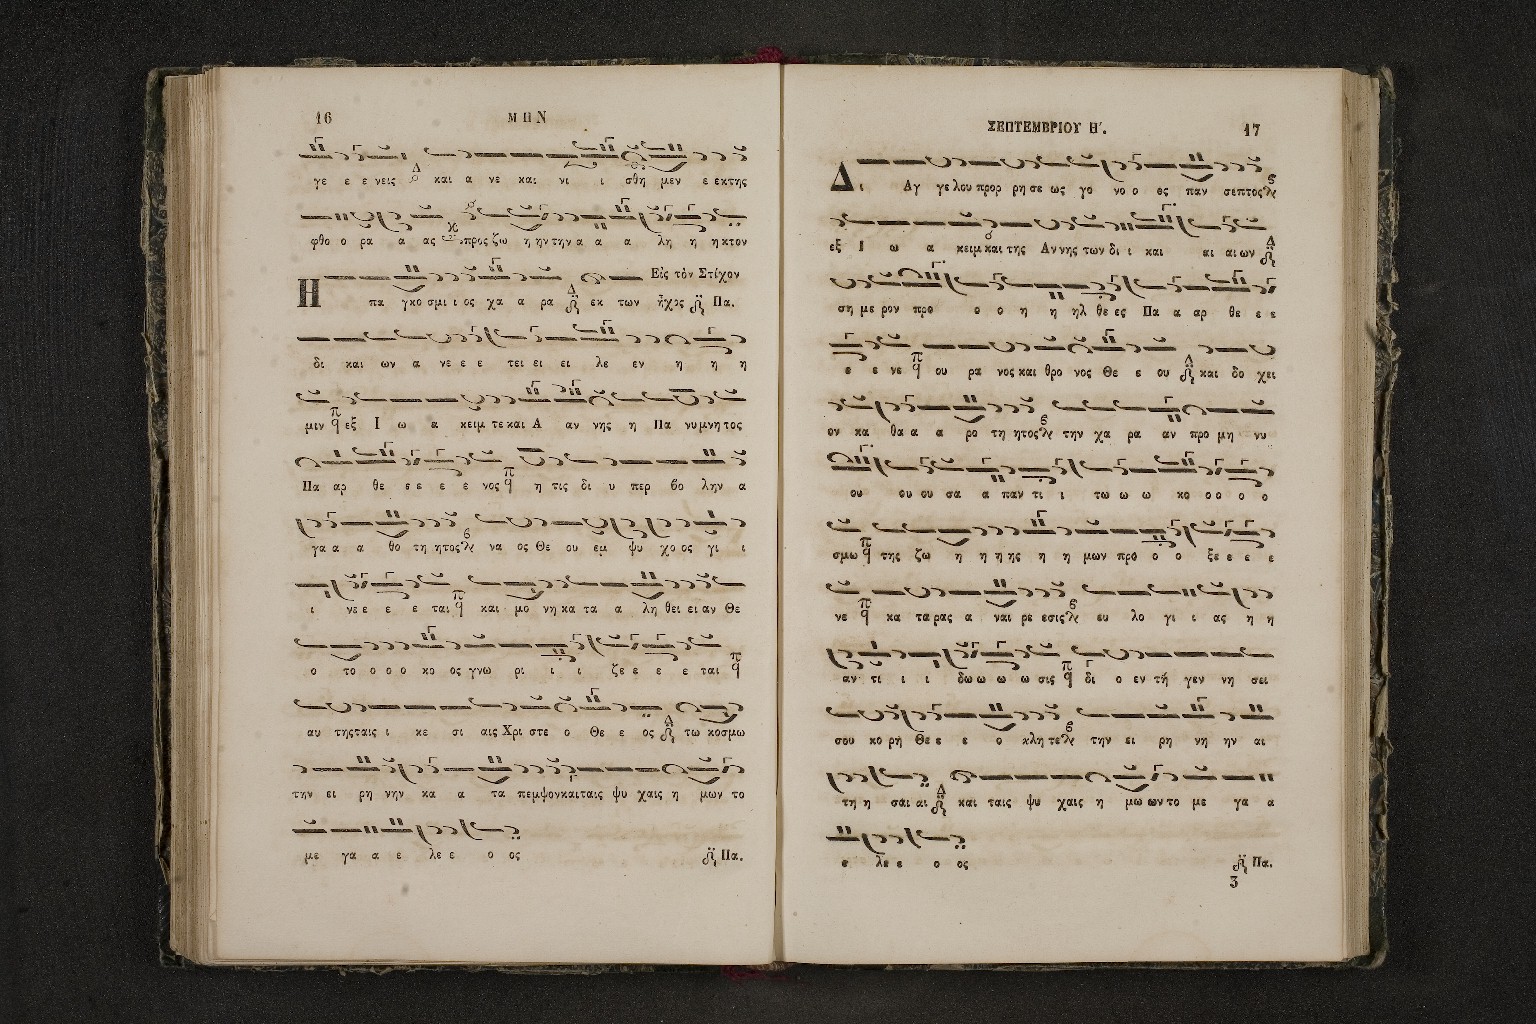 16 ΜΗΝ
γε ε ε νεις και α νε και νι ι σθη μεν ε εκτης
φθο ο ρα α ας προς ζω η ην την α α α λη η η κτον
Εἰς τὸν Στίχον
Η πα γκο σμι ι ος χα α ρα εκ των ἦχος Πα.
δι και ων α νε ε ε τει ει ει λε εν η η η
μιν εξ Ι ω α κειμ τε και Α αν νης η Πα νυ μνη τος
Πα αρ θε ε ε ε ε νος η τις δι υ περ βο λην α
γα α α θο τη ητος να ος Θε ου εμ ψυ χο ος γι ι
ι νε ε ε ε ται και μο νη κα τα α λη θει ει αν Θε
ο το ο ο ο κο ος γνω ρι ι ι ζε ε ε ε ται
αυ της ταις ι κε σι αις Χρι στε ο Θε ε ος τω κοσμω
την ει ρη νην κα α τα πεμψον και ταις ψυ χαις η μων το
με γα α ε λε ε ο ος Πα.
ΣΕΠΤΕΜΒΡΙΟΥ Η΄. 17
Δι Αγ γε λου προρ ρη σε ως γο νο ο ες παν σεπτος
εξ Ι ω α κειμ και της Αν νης των δι ι και αι αι ων
ση με ρον προ ο ο η η ηλ θε ες Πα α αρ θε ε ε
ε ε νε ου ρα νος και θρο νος Θε ε ου και δο χει
ον κα θα α α ρο τη ητος την χα ρα αν προ μη νυ
ου ου ου σα α παν τι ι τω ω ω κο ο ο ο ο
σμω της ζω η η η ης η η μων προ ο ο ξε ε ε ε
νε κα τα ρας α ναι ρε εσις ευ λο γι ι ας η η
αν τι ι ι δω ω ω ω σις δι ο εν τῇ γεν νη σει
σου κο ρη Θε ε ε ο κλη τε την ει ρη νη ην αι
τη η σαι αι και ταις ψυ χαις η μω ων το με γα α
ε λε ε ο ος Πα.
3